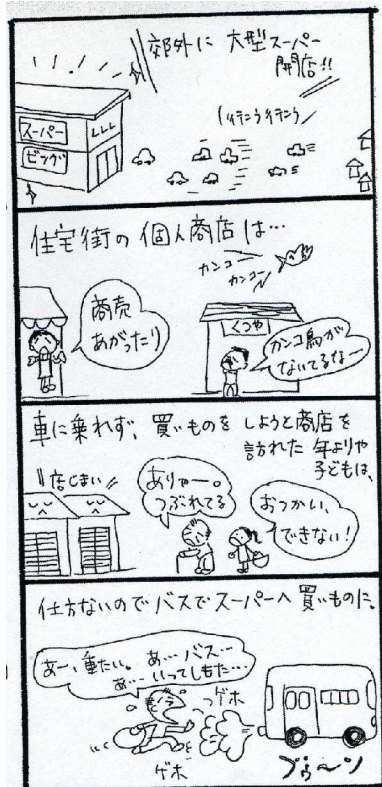 郊外に 大型スーパー
開店!!
行こう行こう
スーパー
ビッグ
住宅街の個人商店は…
カンコー
カンコー
商売
あがったり
くつや
カンコ鳥が
ないてるなー
車に乗れず、買いものをしようと商店を
訪れた年よりや
子どもは、
店じまい
ありゃー。
つぶれてる
おつかい、
できない!
仕方ないのでバスでスーパーへ買いものに。
あー、重たい。あ…バス…
あ…いってしもた…
ゲホ
ゲホ
ブゥ〜ン